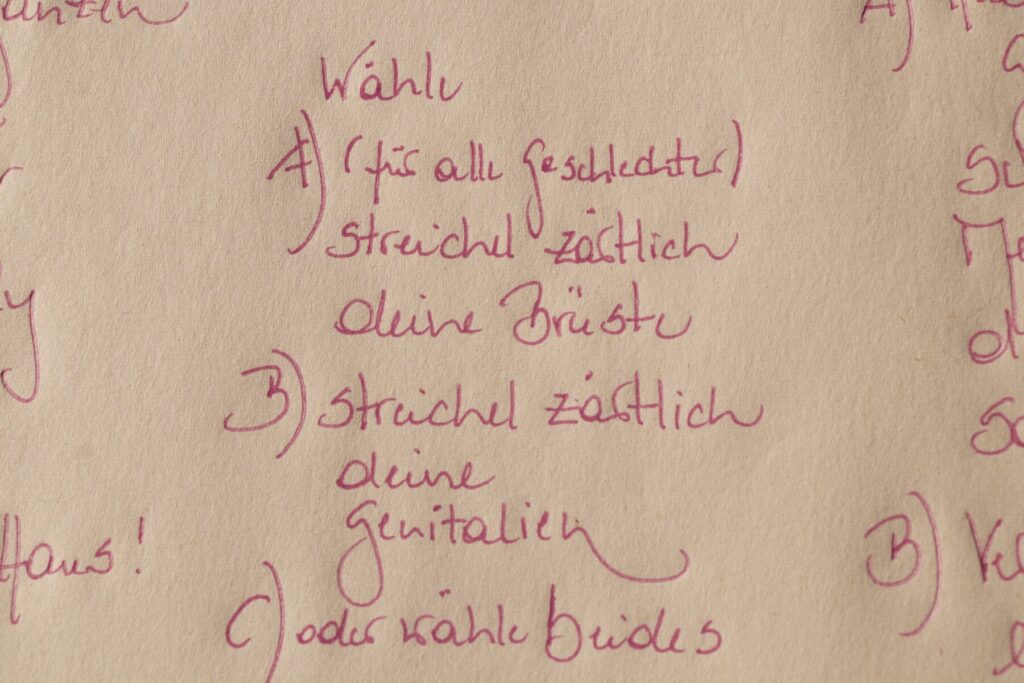 Wähle
A) (für alle Geschlechter)
streichel zärtlich
deine Brüste
B) streichel zärtlich
deine
Genitalien
C) oder wähle beides
Haus!
A)
B)